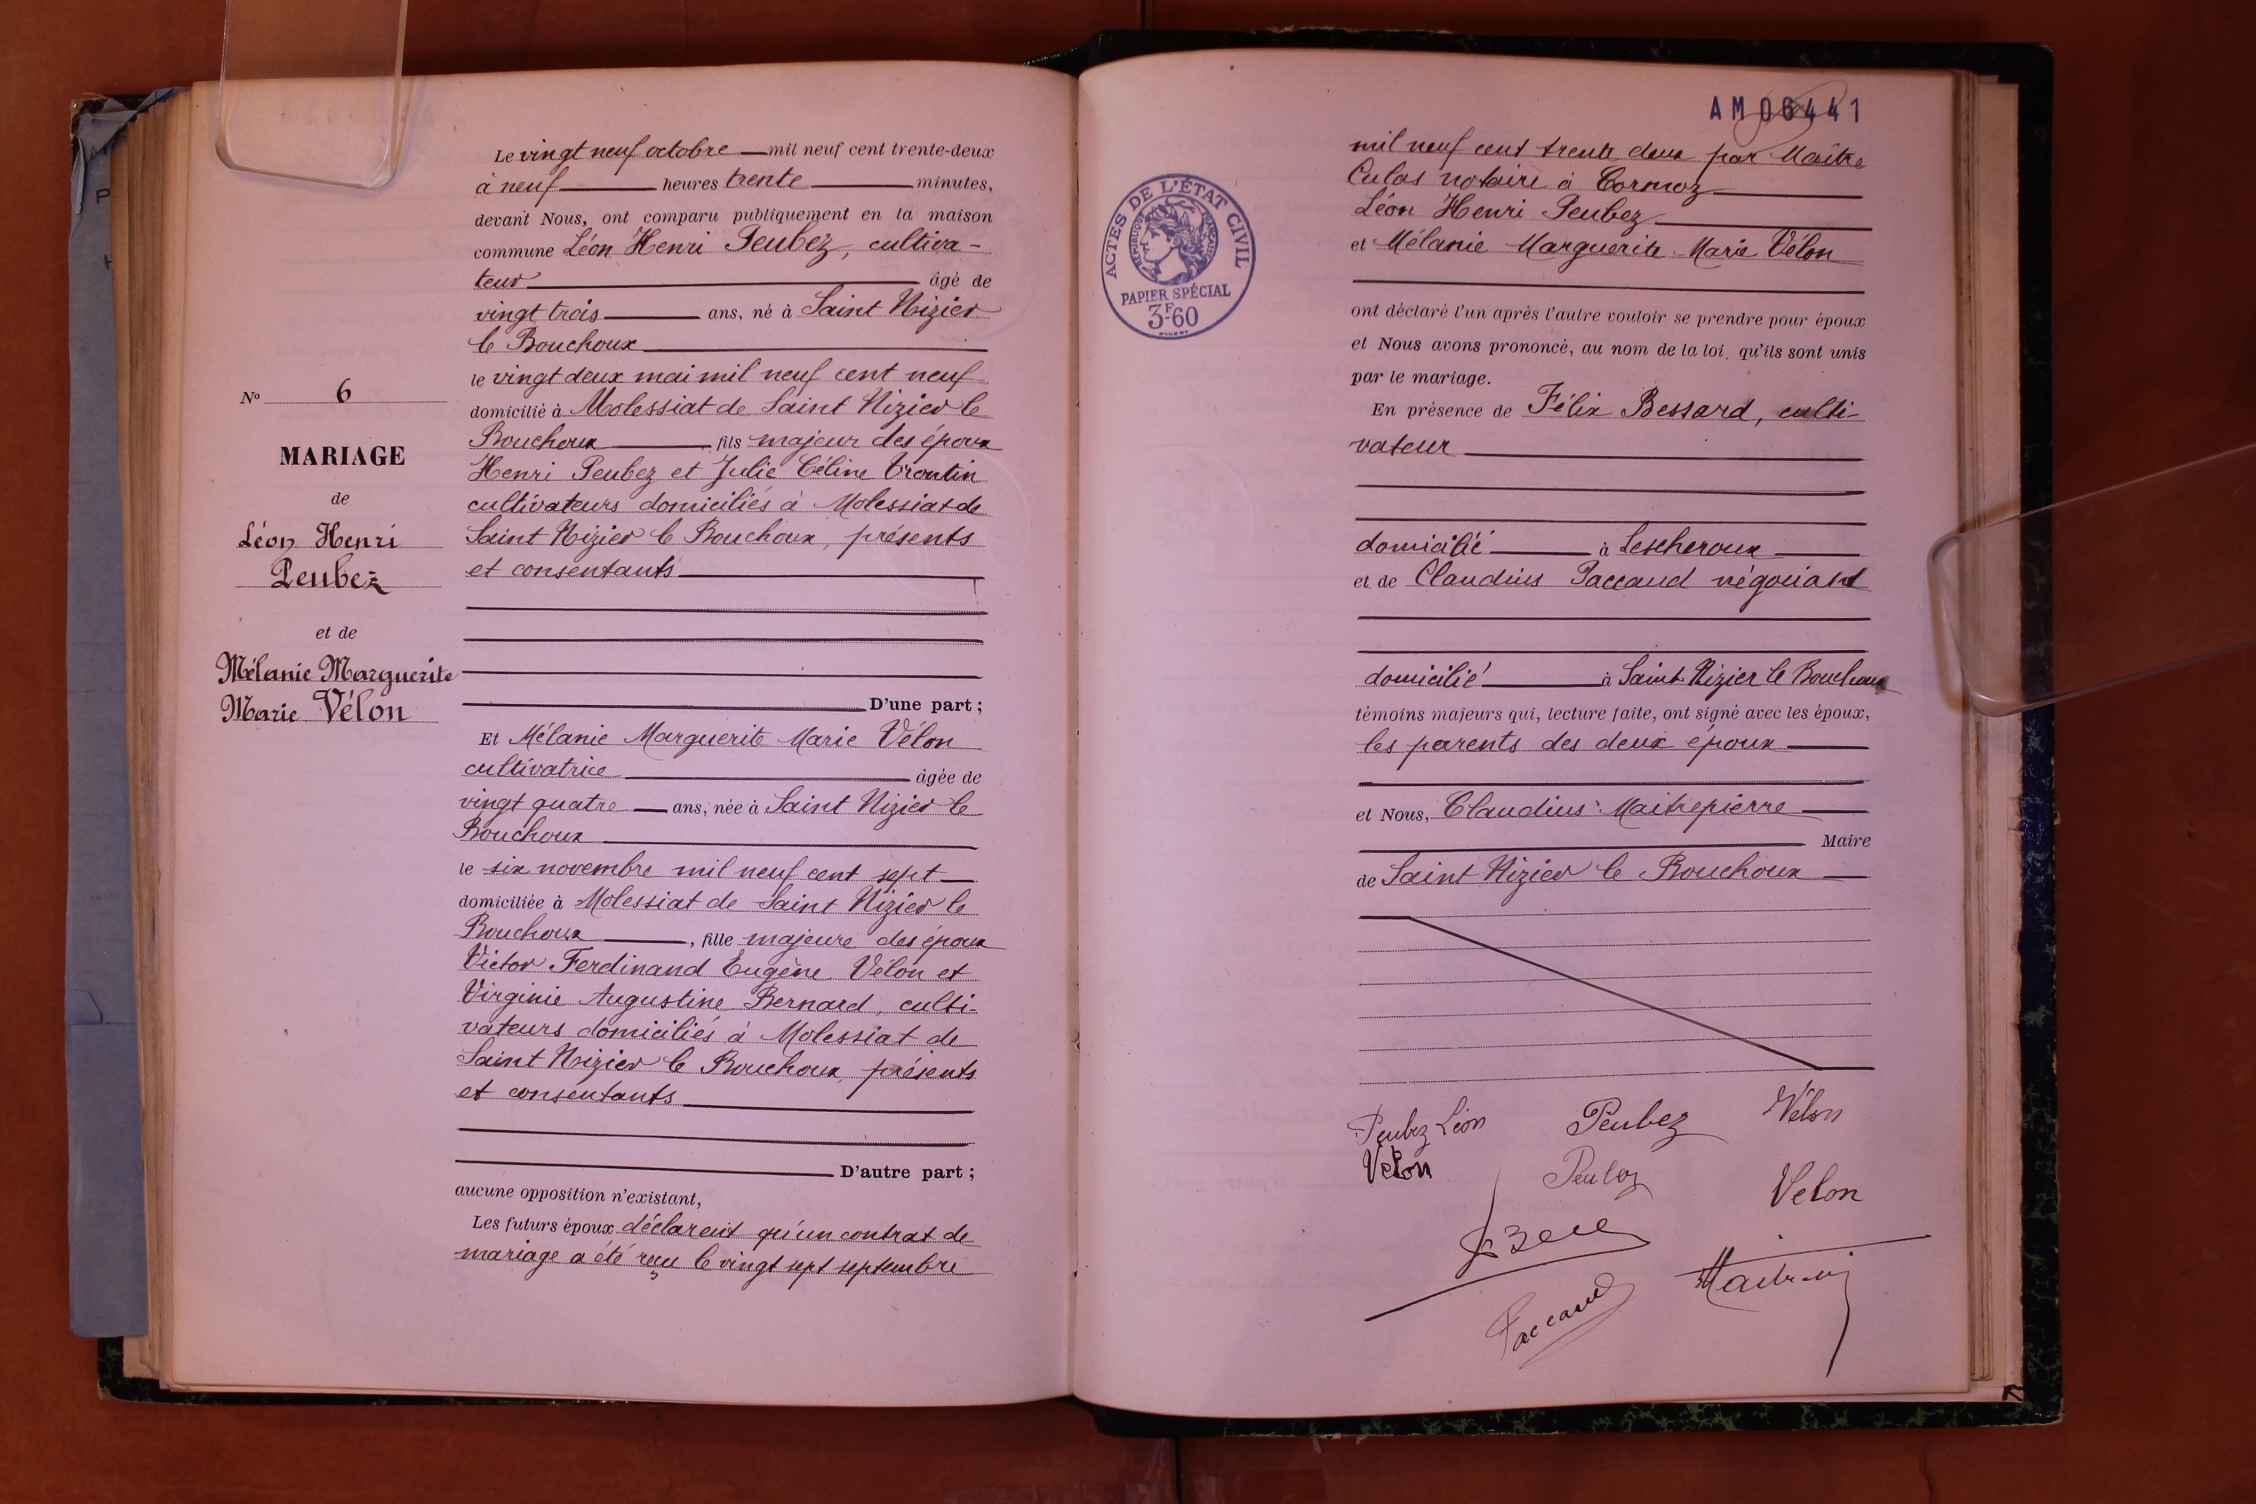 Nº 6
MARIAGE
de
Léon Henri
Peubez
et de
Mélanie Marguerite
Marie Vélon
Le vingt neuf octobre mil neuf cent trente-deux
à neuf heures trente minutes,
devant Nous, ont comparu publiquement en la maison
commune Léon Henri Peubez, cultiva-
teur âgé de
vingt trois ans, né à Saint Nizier
le Bouchoux
le vingt deux mai mil neuf cent neuf
domicilié à Molessiat de Saint Nizier le
Bouchoux, fils majeur des époux
Henri Peubez et Julie Céline Troutin
cultivateurs domiciliés à Molessiat de
Saint Nizier le Bouchoux, présents
et consentants
D'une part ;
Et Mélanie Marguerite Marie Vélon
cultivatrice âgée de
vingt quatre ans, née à Saint Nizier le
Bouchoux
le six novembre mil neuf cent sept
domiciliée à Molessiat de Saint Nizier le
Bouchoux, fille majeure des époux
Victor Ferdinand Eugène Vélon et
Virginie Augustine Bernard, culti-
vateurs domiciliés à Molessiat de
Saint Nizier le Bouchoux, présents
et consentants
D'autre part ;
aucune opposition n'existant,
Les futurs époux déclarent qu'un contrat de
mariage a été reçu le vingt sept septembre
AM06441
ACTES DE L'ÉTAT CIVIL
RÉPUBLIQUE FRANÇAISE
PAPIER SPÉCIAL
3F60
mil neuf cent trente deux par Maître
Culas notaire à Cormoz
Léon Henri Peubez
et Mélanie Marguerite Marie Vélon
ont déclaré l'un après l'autre vouloir se prendre pour époux
et Nous avons prononcé, au nom de la loi, qu'ils sont unis
par le mariage.
En présence de Félix Bessard, culti-
vateur
domicilié à Lescheroux
et de Claudius Paccaud négociant
domicilié à Saint Nizier le Bouchoux
témoins majeurs qui, lecture faite, ont signé avec les époux,
les parents des deux époux
et Nous, Claudius Maitrepierre
Maire
de Saint Nizier le Bouchoux
Peubez Léon Peubez Vélon
Velon Peubez Velon
Paccaud